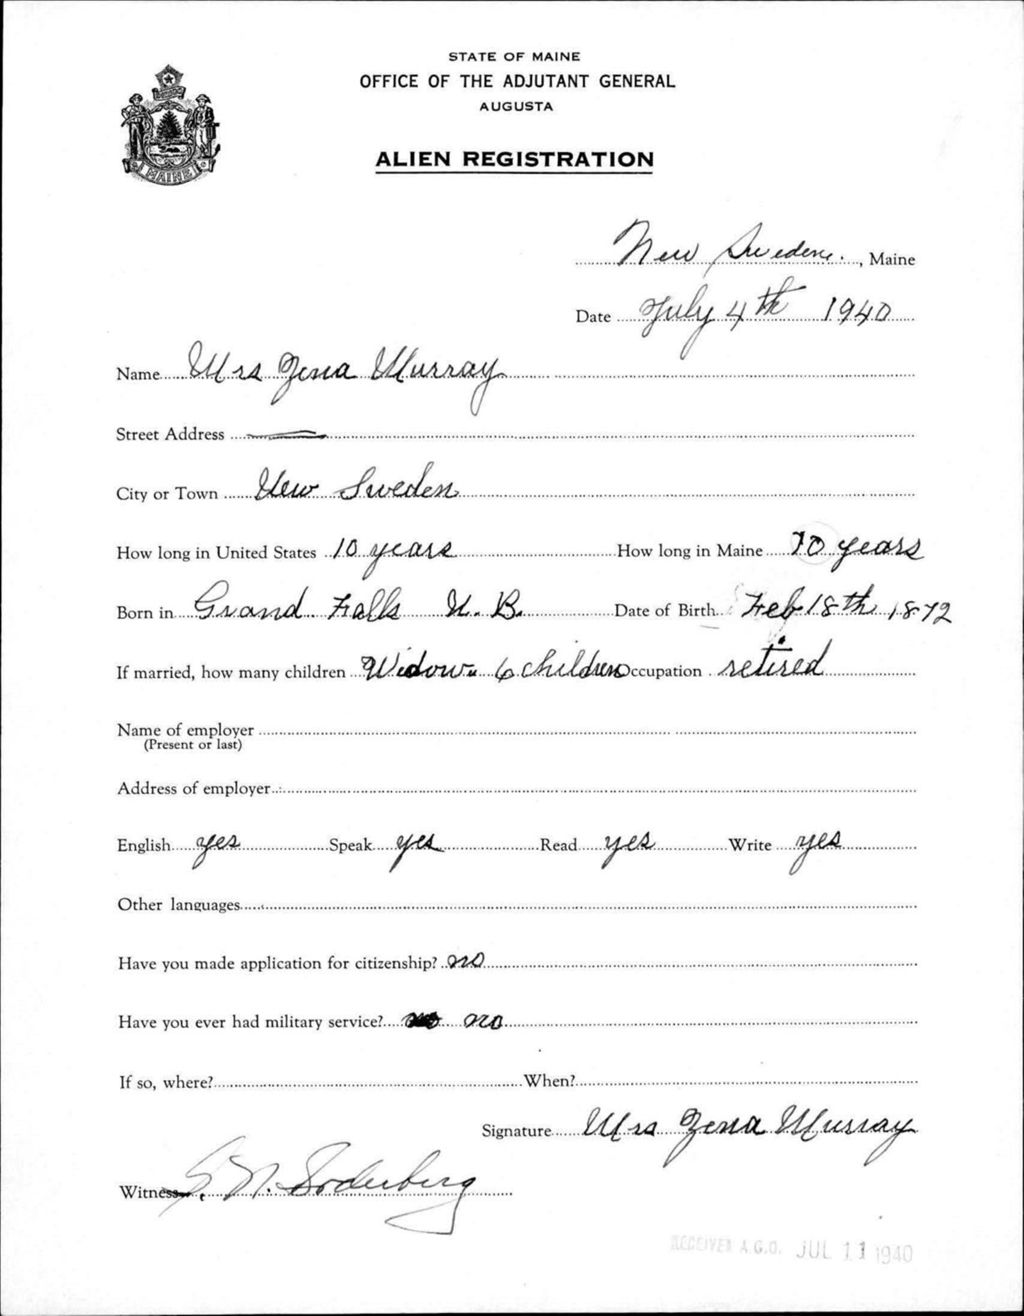 STATE OF MAINE
OFFICE OF THE ADJUTANT GENERAL
AUGUSTA
ALIEN REGISTRATION
MAINE
New Sweden, Maine
Date July 4th 1940
Name Mrs Zena Murray
Street Address
City or Town New Sweden
How long in United States 10 years How long in Maine 10 years
Born in Grand Falls N. B. Date of Birth Feb 18th, 1872
If married, how many children Widow 6 children Occupation retired
Name of employer
(Present or last)
Address of employer
English yes Speak yes Read yes Write yes
Other languages
Have you made application for citizenship? no
Have you ever had military service? no
If so, where? When?
Signature Mrs Zena Murray
Witness N. Soderberg
RECEIVED A.G.O. JUL 11 1940